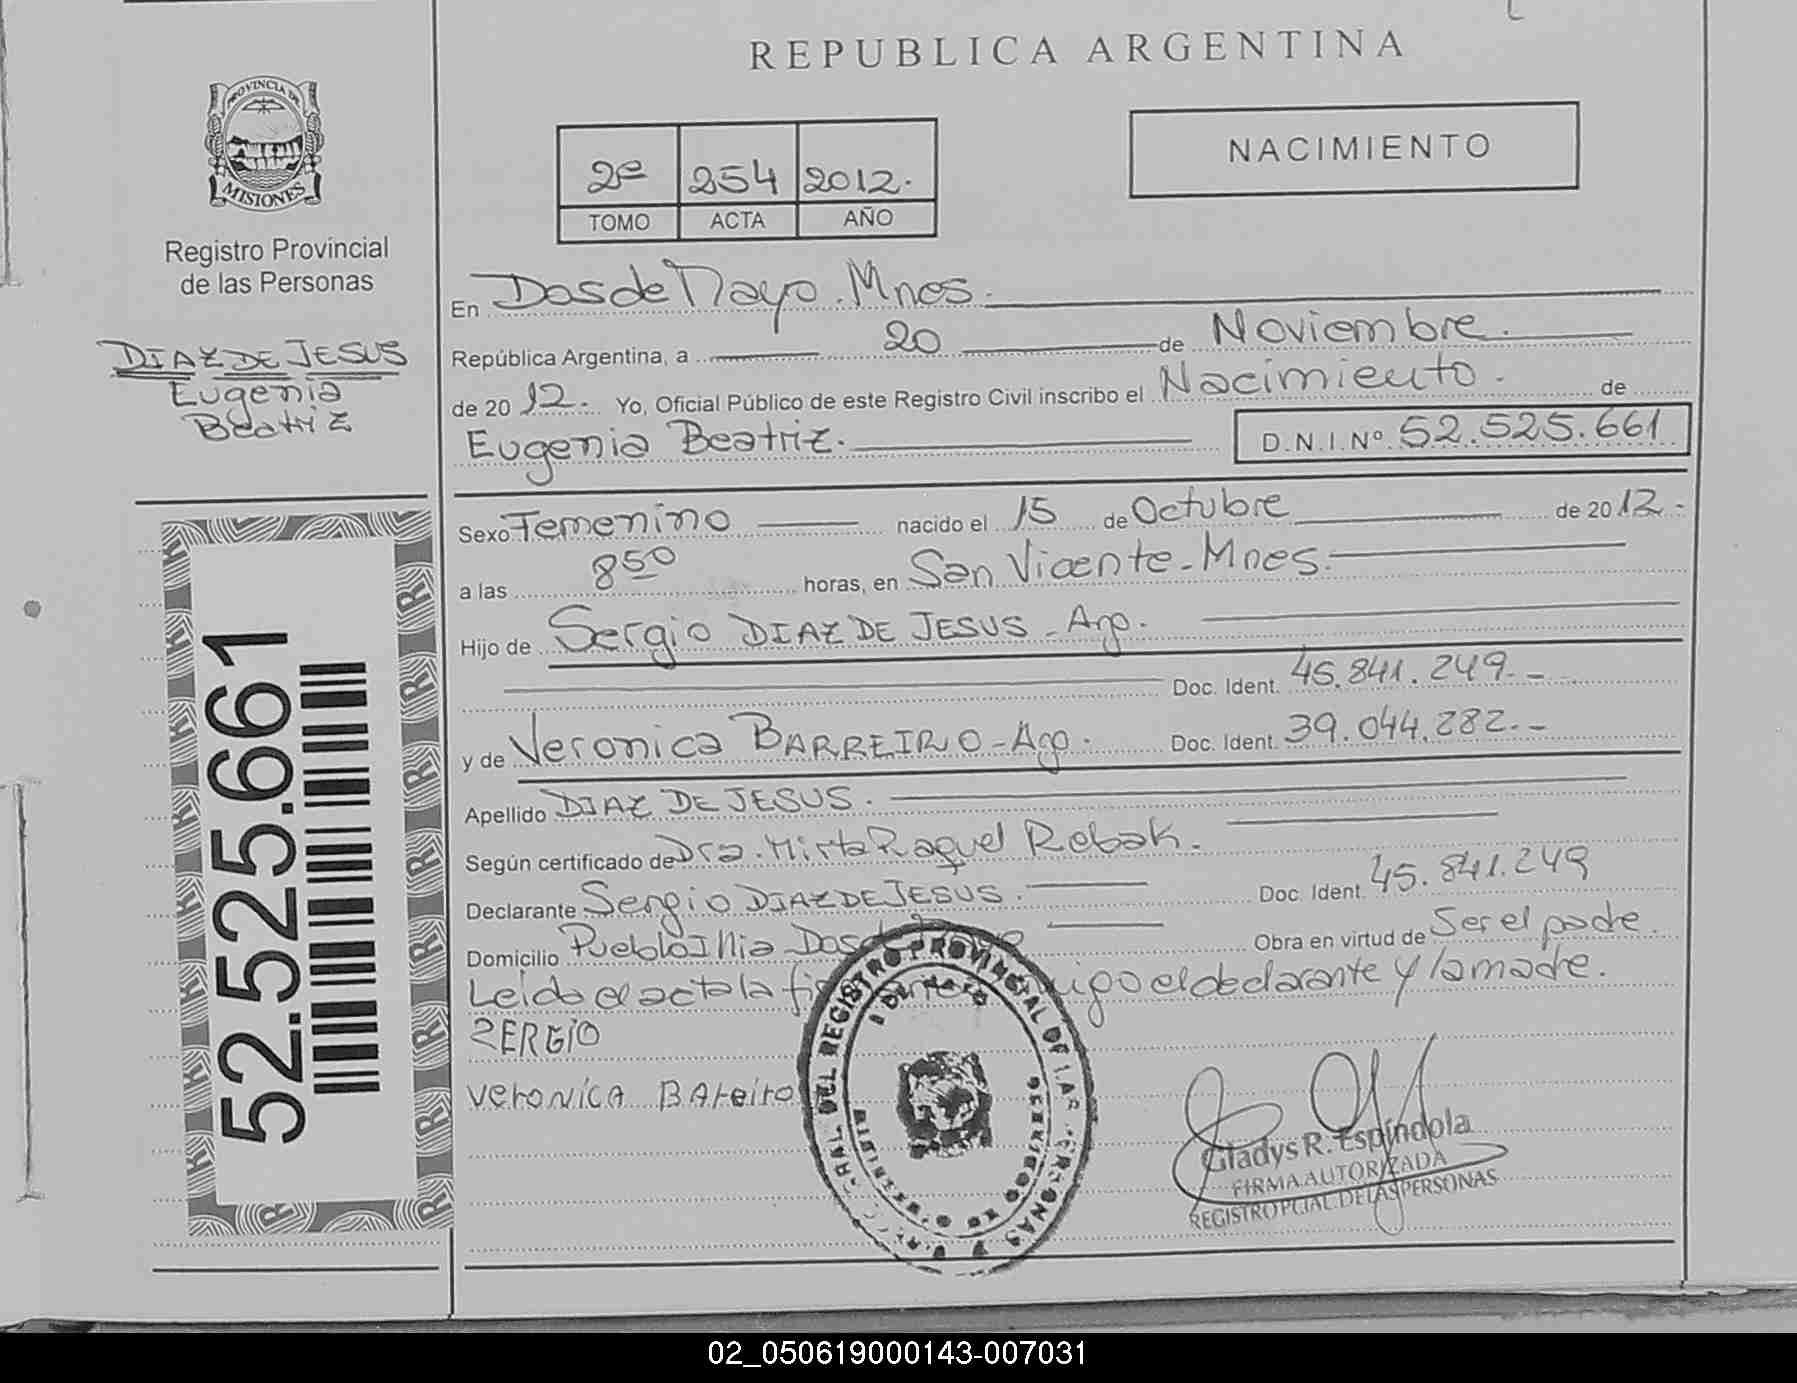 REPUBLICA ARGENTINA
PROVINCIA DE
MISIONES
Registro Provincial
de las Personas
DIAZ DE JESUS
Eugenia
Beatriz
52.525.661
2º 254 2012.
TOMO ACTA AÑO
NACIMIENTO
En Dos de Mayo. Mnes.
República Argentina, a 20 de Noviembre.
de 20 12. Yo, Oficial Público de este Registro Civil inscribo el Nacimiento. de
Eugenia Beatriz. D.N.I. Nº 52.525.661
Sexo Femenino nacido el 15 de Octubre de 20 12.-
a las 8 50 horas, en San Vicente - Mnes.
Hijo de Sergio DIAZ DE JESUS - Arg.
Doc. Ident. 45.841.249.-
y de Veronica BARREIRO - Arg. Doc. Ident. 39.044.282.-
Apellido DIAZ DE JESUS.
Según certificado de Dra. Mirta Raquel Robak.
Declarante Sergio DIAZ DE JESUS. Doc. Ident. 45.841.249
Domicilio Pueblo Illia Dos de Mayo Obra en virtud de Ser el padre.
Leida el acta la el declarante y la madre.
SERGIO
veronica BAreiro
DEL REGISTRO PROVINCIAL DE LAS PERSONAS
Gladys R. Espíndola
FIRMA AUTORIZADA
REGISTRO PCIAL. DE LAS PERSONAS
02_050619000143-007031